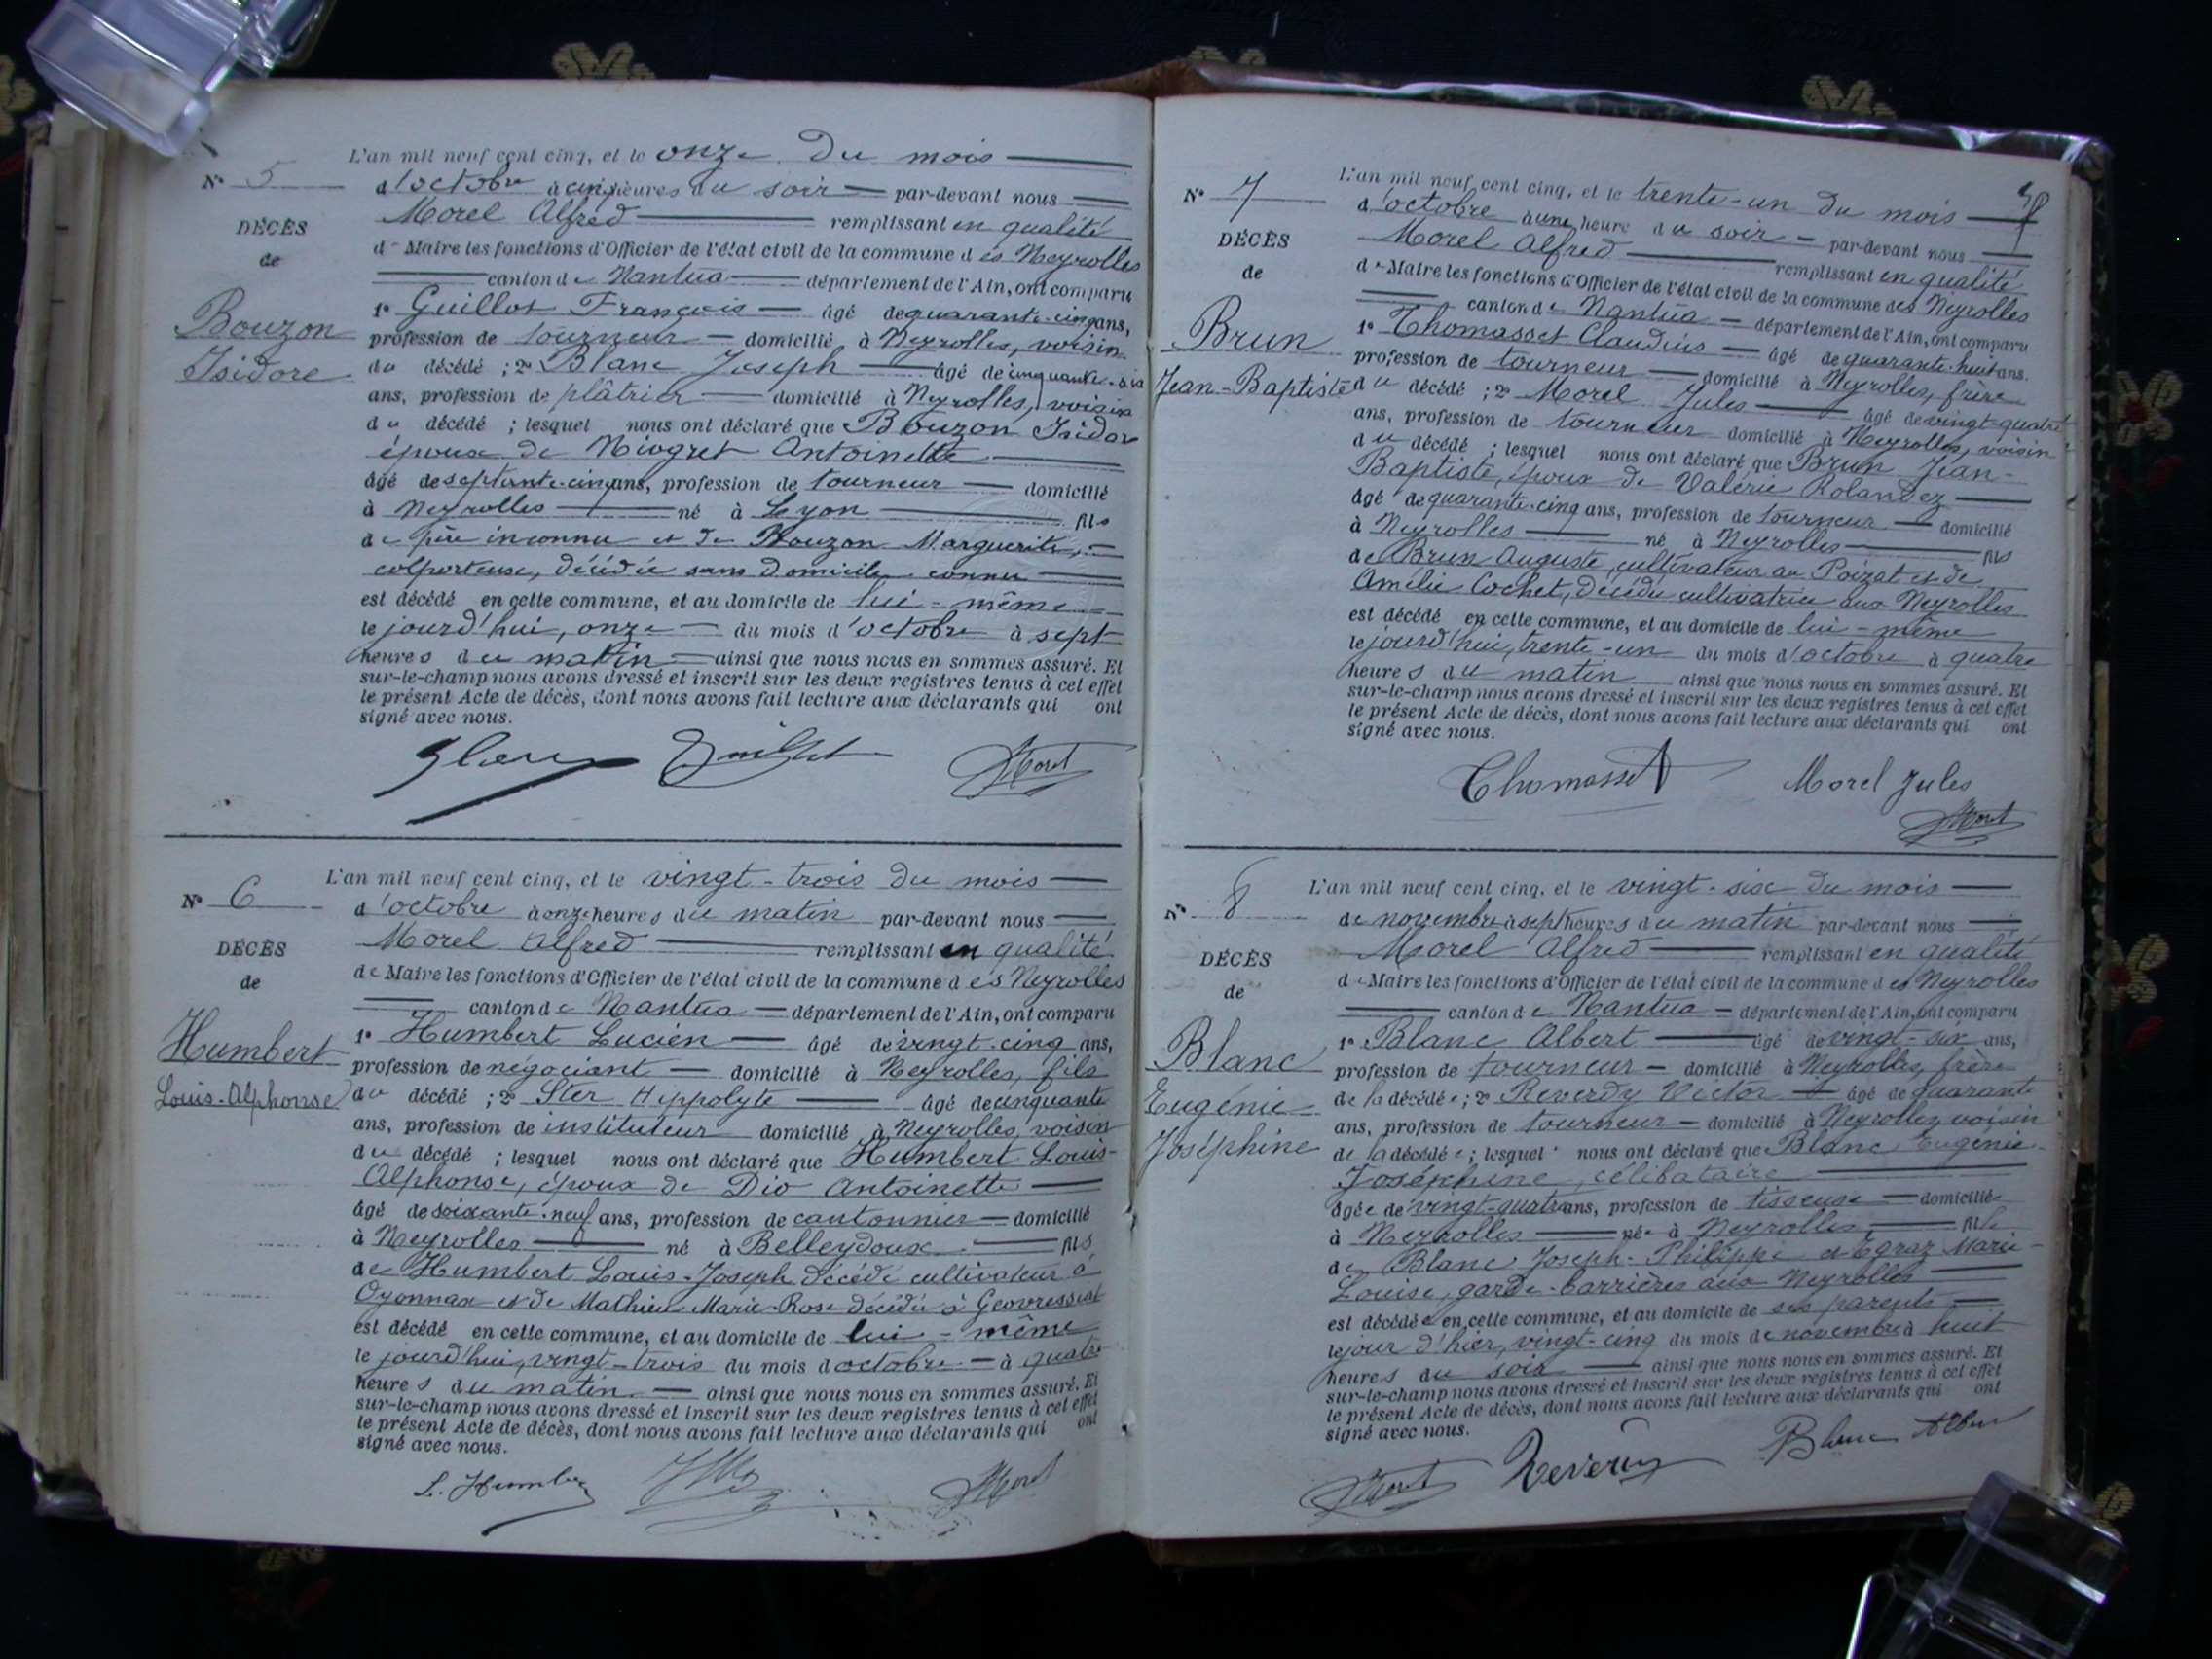 L'an mil neuf cent cinq, et le onze du mois
N° 5
d'octobre à cinq heures du soir par-devant nous
Morel Alfred remplissant en qualité
DÉCÈS
de Maire les fonctions d'Officier de l'état civil de la commune des Neyrolles
de
canton de Nantua département de l'Ain, ont comparu
1° Guillot François âgé de quarante-cinq ans,
Bouzon
profession de tourneur domicilié à Neyrolles, voisin
Isidore
du décédé ; 2° Blanc Joseph âgé de cinquante-six
ans, profession de plâtrier domicilié à Neyrolles, voisin
du décédé ; lesquel nous ont déclaré que Bouzon Isidor
époux de Niogret Antoinette
âgé de septante-cinq ans, profession de tourneur domicilié
à Neyrolles né à Lyon fils
de père inconnu et de Bouzon Marguerite,
colporteuse, décédée sans domicile connu
est décédé en cette commune, et au domicile de lui-même
le jourd'hui, onze du mois d'octobre à sept
heures du matin ainsi que nous nous en sommes assuré. Et
sur-le-champ nous avons dressé et inscrit sur les deux registres tenus à cet effet
le présent Acte de décès, dont nous avons fait lecture aux déclarants qui ont
signé avec nous.
AMorel
L'an mil neuf cent cinq, et le vingt-trois du mois
N° 6
d'octobre à onze heures du matin par-devant nous
Morel Alfred remplissant en qualité
DÉCÈS
de Maire les fonctions d'Officier de l'état civil de la commune des Neyrolles
de
canton de Nantua département de l'Ain, ont comparu
1° Humbert Lucien âgé de vingt-cinq ans,
Humbert
profession de négociant domicilié à Neyrolles, fils
Louis-Alphonse
du décédé ; 2° Ster Hippolyte âgé de cinquante
ans, profession de instituteur domicilié à Neyrolles, voisin
du décédé ; lesquel nous ont déclaré que Humbert Louis-
Alphonse, époux de Dio Antoinette
âgé de soixante-neuf ans, profession de cantonnier domicilié
à Neyrolles né à Belleydoux fils
de Humbert Louis-Joseph décédé cultivateur à
Oyonnax et de Mathieu Marie-Rose décédée à Geovressiat
est décédé en cette commune, et au domicile de lui-même
le jourd'hui, vingt-trois du mois d'octobre à quatre
heures du matin ainsi que nous nous en sommes assuré. Et
sur-le-champ nous avons dressé et inscrit sur les deux registres tenus à cet effet
le présent Acte de décès, dont nous avons fait lecture aux déclarants qui ont
signé avec nous.
L. Humbert AMorel
L'an mil neuf cent cinq, et le trente-un du mois
N° 7
d'octobre à une heure du soir par-devant nous
Morel Alfred remplissant en qualité
DÉCÈS
de Maire les fonctions d'Officier de l'état civil de la commune des Neyrolles
de
canton de Nantua département de l'Ain, ont comparu
1° Thomasset Claudius âgé de quarante-huit ans.
Brun
profession de tourneur domicilié à Neyrolles, frère
Jean-Baptiste
du décédé ; 2° Morel Jules âgé de vingt-quatre
ans, profession de tourneur domicilié à Neyrolles, voisin
du décédé ; lesquel nous ont déclaré que Brun Jean-
Baptiste, époux de Valérie Rolandez
âgé de quarante-cinq ans, profession de tourneur domicilié
à Neyrolles né à Neyrolles fils
de Brun Auguste, cultivateur au Poizat et de
Amélie Cochet, décédée cultivatrice aux Neyrolles
est décédé en cette commune, et au domicile de lui-même
le jourd'hui, trente-un du mois d'octobre à quatre
heures du matin ainsi que nous nous en sommes assuré. Et
sur-le-champ nous avons dressé et inscrit sur les deux registres tenus à cet effet
le présent Acte de décès, dont nous avons fait lecture aux déclarants qui ont
signé avec nous.
Thomasset Morel Jules
AMorel
L'an mil neuf cent cinq, et le vingt-six du mois
N° 8
de novembre à sept heures du matin par-devant nous
Morel Alfred remplissant en qualité
DÉCÈS
de Maire les fonctions d'Officier de l'état civil de la commune des Neyrolles
de
canton de Nantua département de l'Ain, ont comparu
1° Blanc Albert âgé de vingt-six ans,
Blanc
profession de tourneur domicilié à Neyrolles, frère
Eugénie-
de la décédée ; 2° Reverdy Victor âgé de quarante
ans, profession de tourneur domicilié à Neyrolles, voisin
Joséphine
de la décédée ; lesquel nous ont déclaré que Blanc Eugénie-
Joséphine, célibataire
âgée de vingt-quatre ans, profession de tisseuse domiciliée
à Neyrolles née à Neyrolles, fille
de Blanc Joseph-Philippe et Egraz Marie-
Louise, garde-barrières aux Neyrolles
est décédée en cette commune, et au domicile de ses parents
le jour d'hier, vingt-cinq du mois de novembre à huit
heures du soir ainsi que nous nous en sommes assuré. Et
sur-le-champ nous avons dressé et inscrit sur les deux registres tenus à cet effet
le présent Acte de décès, dont nous avons fait lecture aux déclarants qui ont
signé avec nous.
AMorel Reverdy Blanc Albert